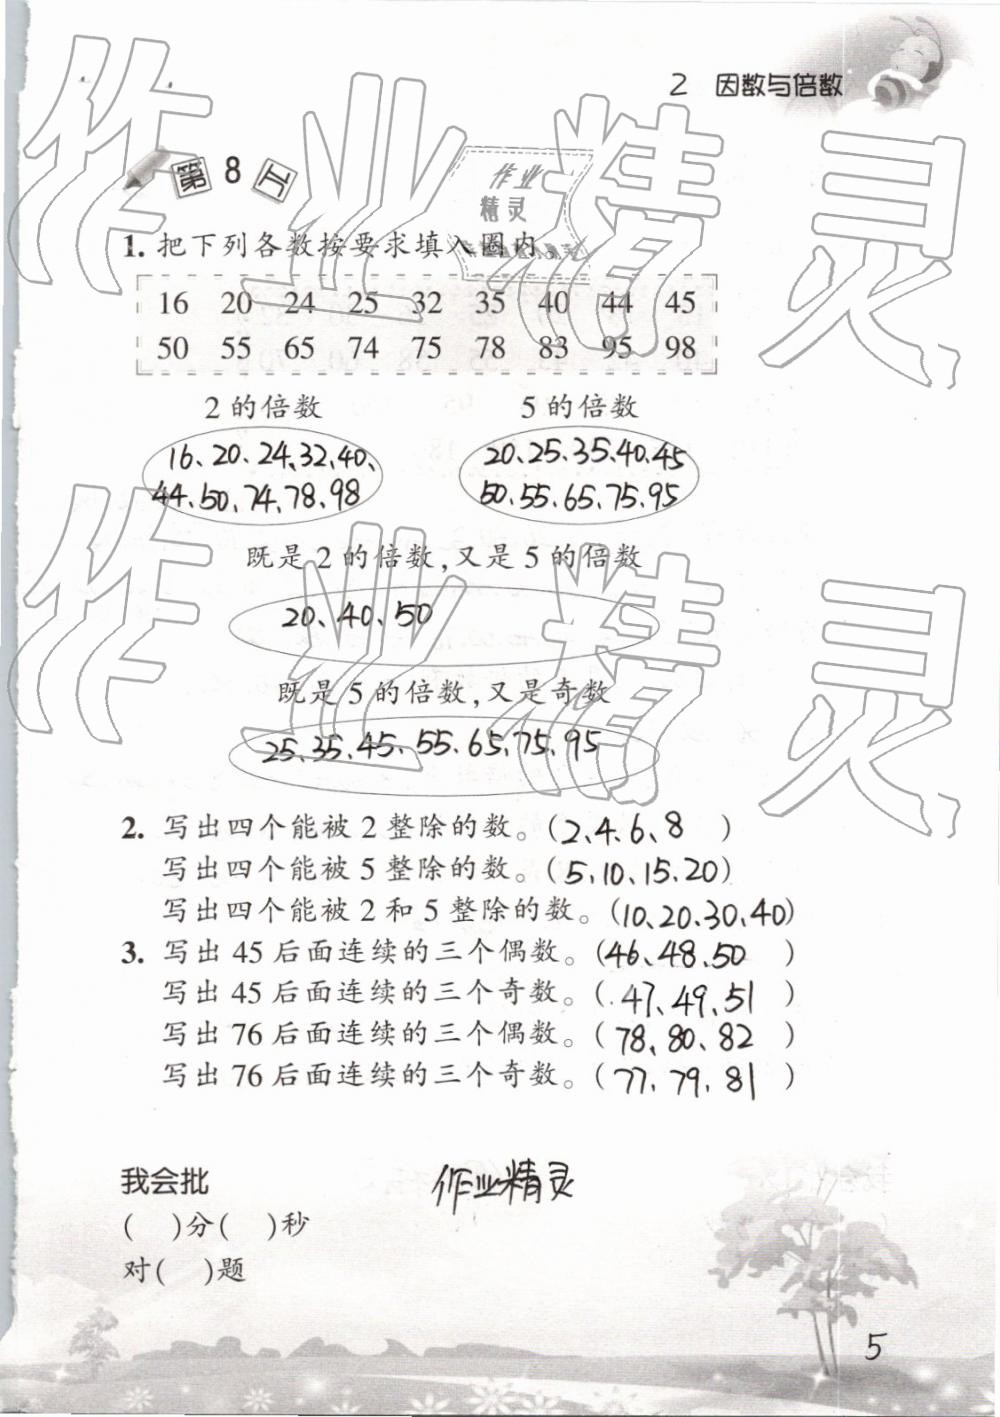 2 因数与倍数
第 8 天
作业
精灵
1. 把下列各数按要求填入圈内。
16 20 24 25 32 35 40 44 45
50 55 65 74 75 78 83 95 98
2 的倍数 5 的倍数
16、20、24、32、40、 20、25、35、40、45
44、50、74、78、98 50、55、65、75、95
既是 2 的倍数,又是 5 的倍数
20、40、50
既是 5 的倍数,又是奇数
25、35、45、55、65、75、95
2. 写出四个能被 2 整除的数。(2、4、6、8 )
写出四个能被 5 整除的数。(5、10、15、20)
写出四个能被 2 和 5 整除的数。(10、20、30、40)
3. 写出 45 后面连续的三个偶数。(46、48、50 )
写出 45 后面连续的三个奇数。(47、49、51 )
写出 76 后面连续的三个偶数。(78、80、82 )
写出 76 后面连续的三个奇数。(77、79、81 )
我会批 作业精灵
( )分( )秒
对( )题
5
作业精灵
作业精灵